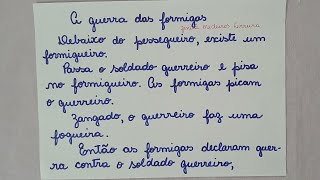 A guerra das formigas
Debaixo do pessegueiro, existe um
formigueiro.
Passa o soldado guerreiro e pisa
no formigueiro. As formigas picam
o guerreiro.
Zangado, o guerreiro faz uma
fogueira.
Então as formigas declaram guer-
ra contra o soldado guerreiro,